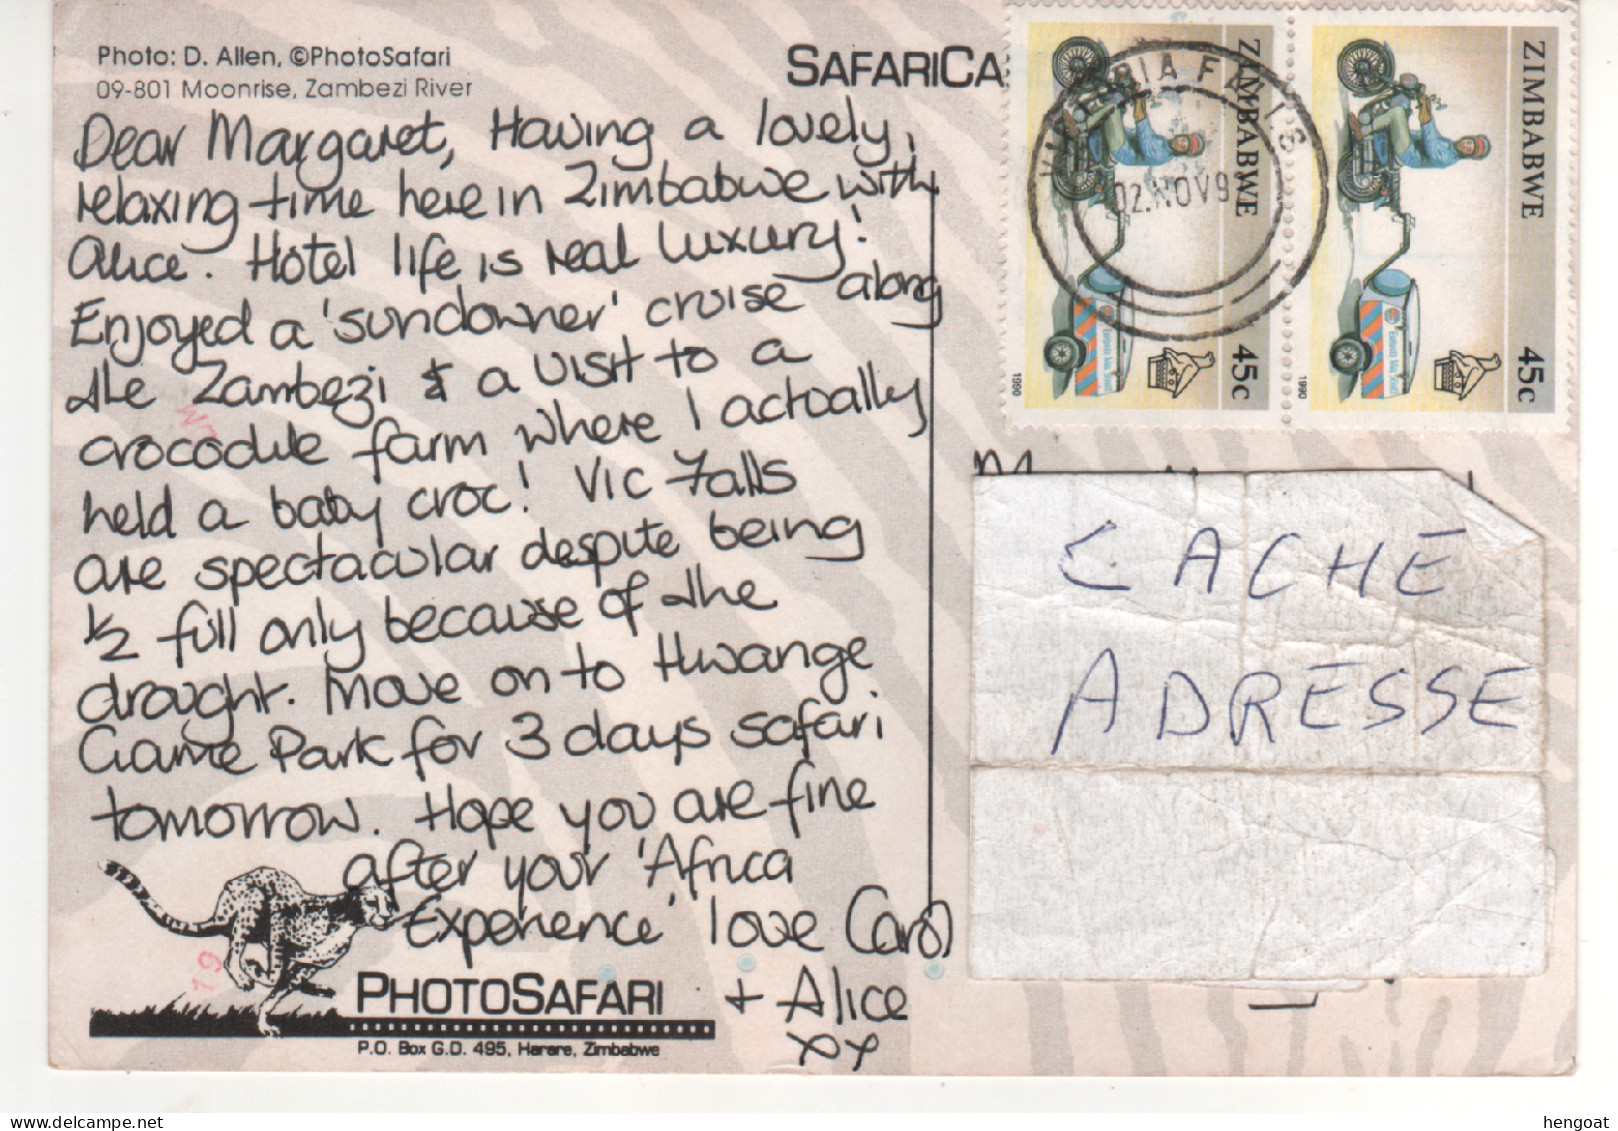 Photo: D. Allen, ©PhotoSafari
09-801 Moonrise, Zambezi River
SAFARICA
Dear Margaret, Having a lovely,
relaxing time here in Zimbabwe with
Alice. Hotel life is real luxury!
Enjoyed a 'sundowner' cruise along
the Zambezi & a visit to a
crocodile farm where I actually
held a baby croc! Vic Falls
are spectacular despite being
1/2 full only because of the
drought. Move on to Hwange
Game Park for 3 days safari
tomorrow. Hope you are fine
after your 'Africa
Experience' love Carol
+ Alice
xx
PHOTOSAFARI
P.O. Box G.D. 495, Harare, Zimbabwe
19
ZIMBABWE
45c
1990
ZIMBABWE
45c
1990
VICTORIA FALLS
02.NOV9
CACHE
ADRESSE
hengoat